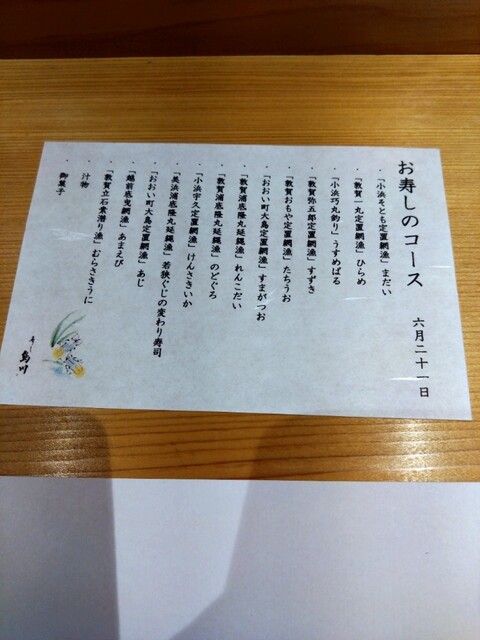 お寿しのコース 六月二十一日
・「小浜そとも定置網漁」まだい
・「敦賀一丸定置網漁」ひらめ
・「小浜巧丸釣り」うすめばる
・「敦賀弥五郎定置網漁」すずき
・「敦賀おもや定置網漁」たちうお
・「おおい町大島定置網漁」すまがつお
・「敦賀浦底隆丸延縄漁」れんこだい
・「敦賀浦底隆丸延縄漁」のどぐろ
・「小浜宇久定置網漁」けんさきいか
・「美浜浦底隆丸延縄漁」若狭ぐじの変わり寿司
・「おおい町大島定置網漁」あじ
・「越前底曳網漁」あまえび
・「敦賀立石素潜り漁」むらさきうに
・汁物
・御菓子